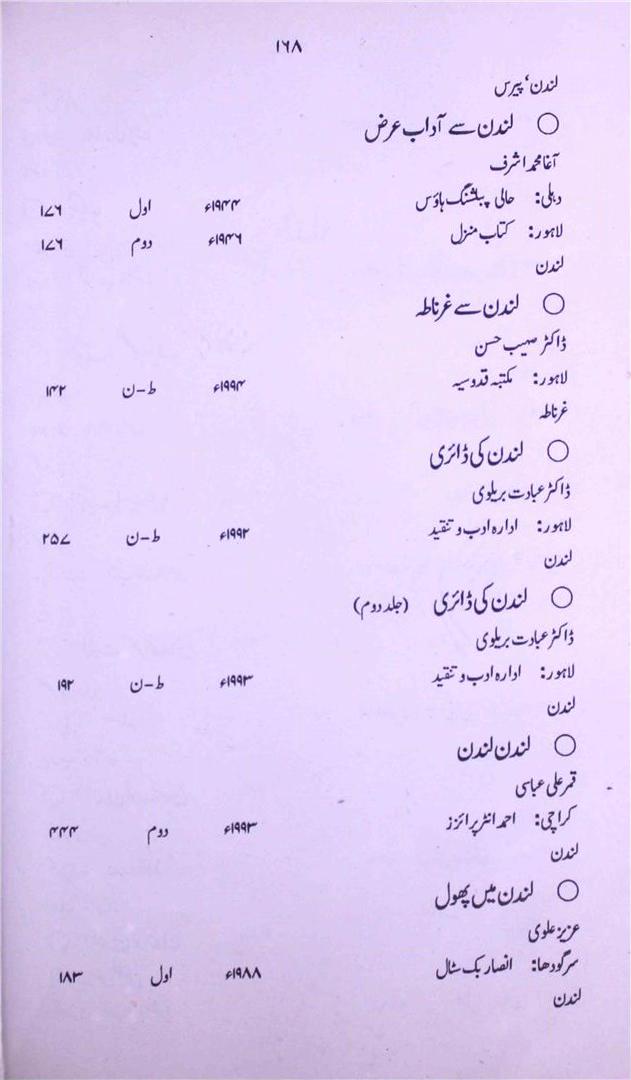 ۱۶۸
لندن، پیرس
○ لندن سے آداب عرض
آغا محمد اشرف
دہلی: حالی پبلشنگ ہاؤس ۱۹۴۴ء اول ۱۷۶
لاہور: کتاب منزل ۱۹۴۶ء دوم ۱۷۶
لندن
○ لندن سے غرناطہ
ڈاکٹر صہیب حسن
لاہور: مکتبہ قدوسیہ ۱۹۹۴ء ط-ن ۱۴۲
غرناطہ
○ لندن کی ڈائری
ڈاکٹر عبادت بریلوی
لاہور: ادارہ ادب و تنقید ۱۹۹۲ء ط-ن ۲۵۷
لندن
○ لندن کی ڈائری (جلد دوم)
ڈاکٹر عبادت بریلوی
لاہور: ادارہ ادب و تنقید ۱۹۹۳ء ط-ن ۱۹۲
لندن
○ لندن لندن
قمر علی عباسی
کراچی: احمد انٹرپرائزز ۱۹۹۳ء دوم ۴۴۴
لندن
○ لندن میں پھول
عزیز علوی
سرگودھا: انصار بک سٹال ۱۹۸۸ء اول ۱۸۳
لندن